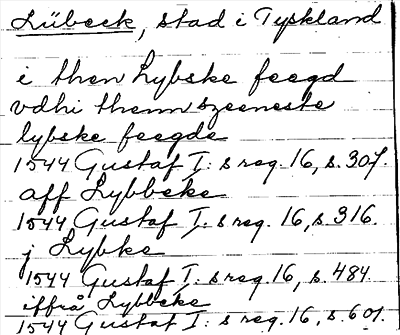 Lübeck, stad i Tyskland
i then Lybske feegd
vdhi thenn szeeneste
lybske feegde
1544 Gustaf I: s reg. 16, s. 307.
aff Lybbeke
1544 Gustaf I: s reg. 16, s. 316.
j Lybke
1544 Gustaf I: s reg. 16, s. 484.
iffrå Lybbeke
1544 Gustaf I: s reg. 16, s. 607.